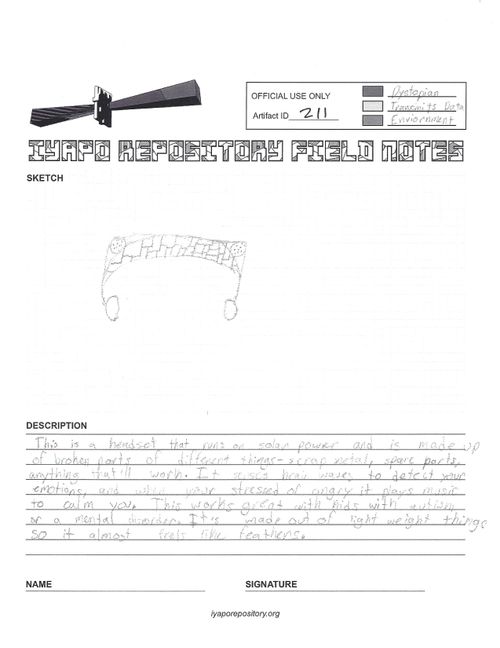 OFFICIAL USE ONLY
Artifact ID 211
Dystopian
Transmits Data
Enviornment
IYAPO REPOSITORY FIELD NOTES
SKETCH
DESCRIPTION
This is a headset that runs on solar power and is made up
of broken parts of different things- scrap metal, spare parts,
anything that'll work. It uses brain waves to detect your
emotions, and when your stressed or angry it plays music
to calm you. This works great with kids with autism
or a mental disorder. It's made out of light weight things
so it almost feels like feathers.
NAME
SIGNATURE
iyaporepository.org